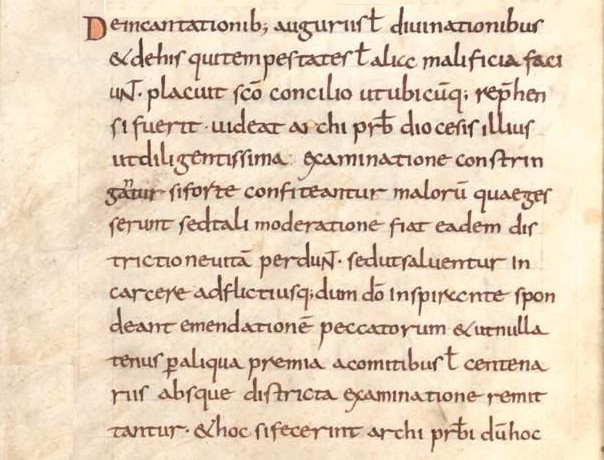 De incantationib; auguriis ƚ diuinationibus
& de his qui tempestates ƚ alia malificia faci
uN̄· placuit scō concilio ut ubicūq; rep̄hen
si fuerit· uideat archi prb̄ diocesis illius
ut diligentissima examinatione constrin
gantur si forte confiteantur malorū quae ges
serunt sed tali moderatione fiat eadem dis
trictione uitā perduN̄· sed ut saluentur in
carcere adflicti usq; dum dō inspirante spon
deant emendationē peccatorum & ut nulla
tenus ꝑ aliqua premia a comitibus ƚ centena
riis absque districta examinatione remit
tantur· & hoc si fecerint archi prb̄i dū hoc